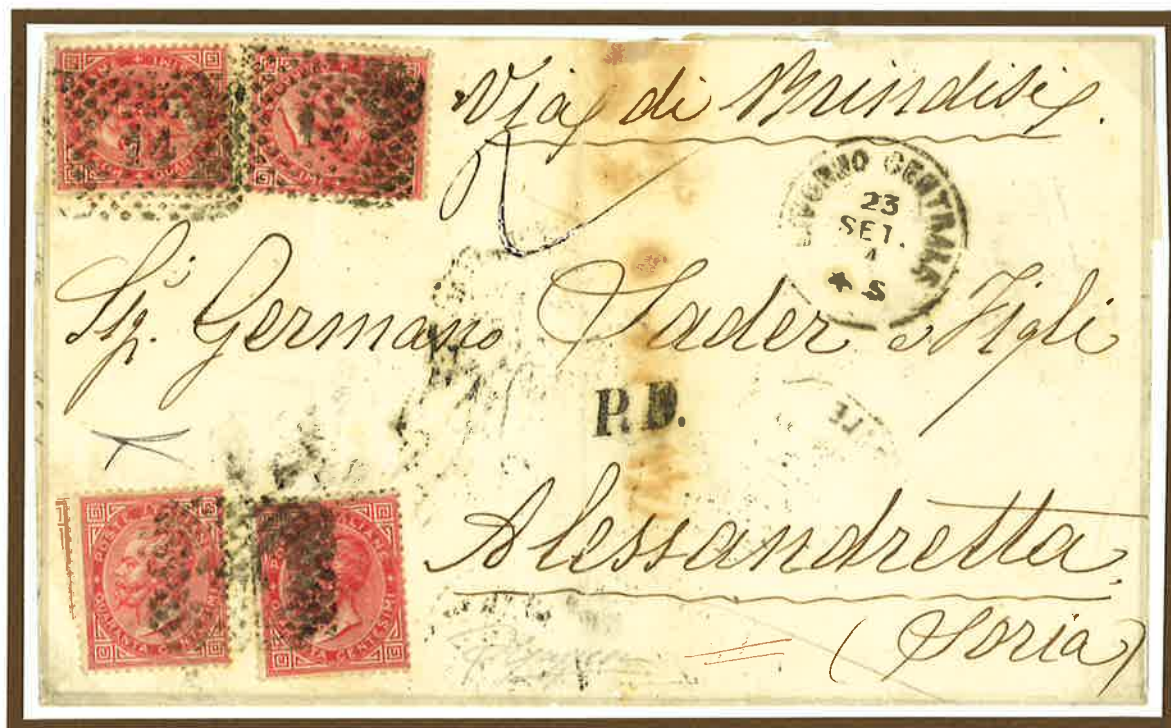 Via di Brindisi.
LIVORNO CENTRALE
23
SET.
4 S
Sig. Germano Sader e Figli
P.D.
Alessandretta.
(Soria)
POSTE ITALIANE
QUARANTA CENTESIMI